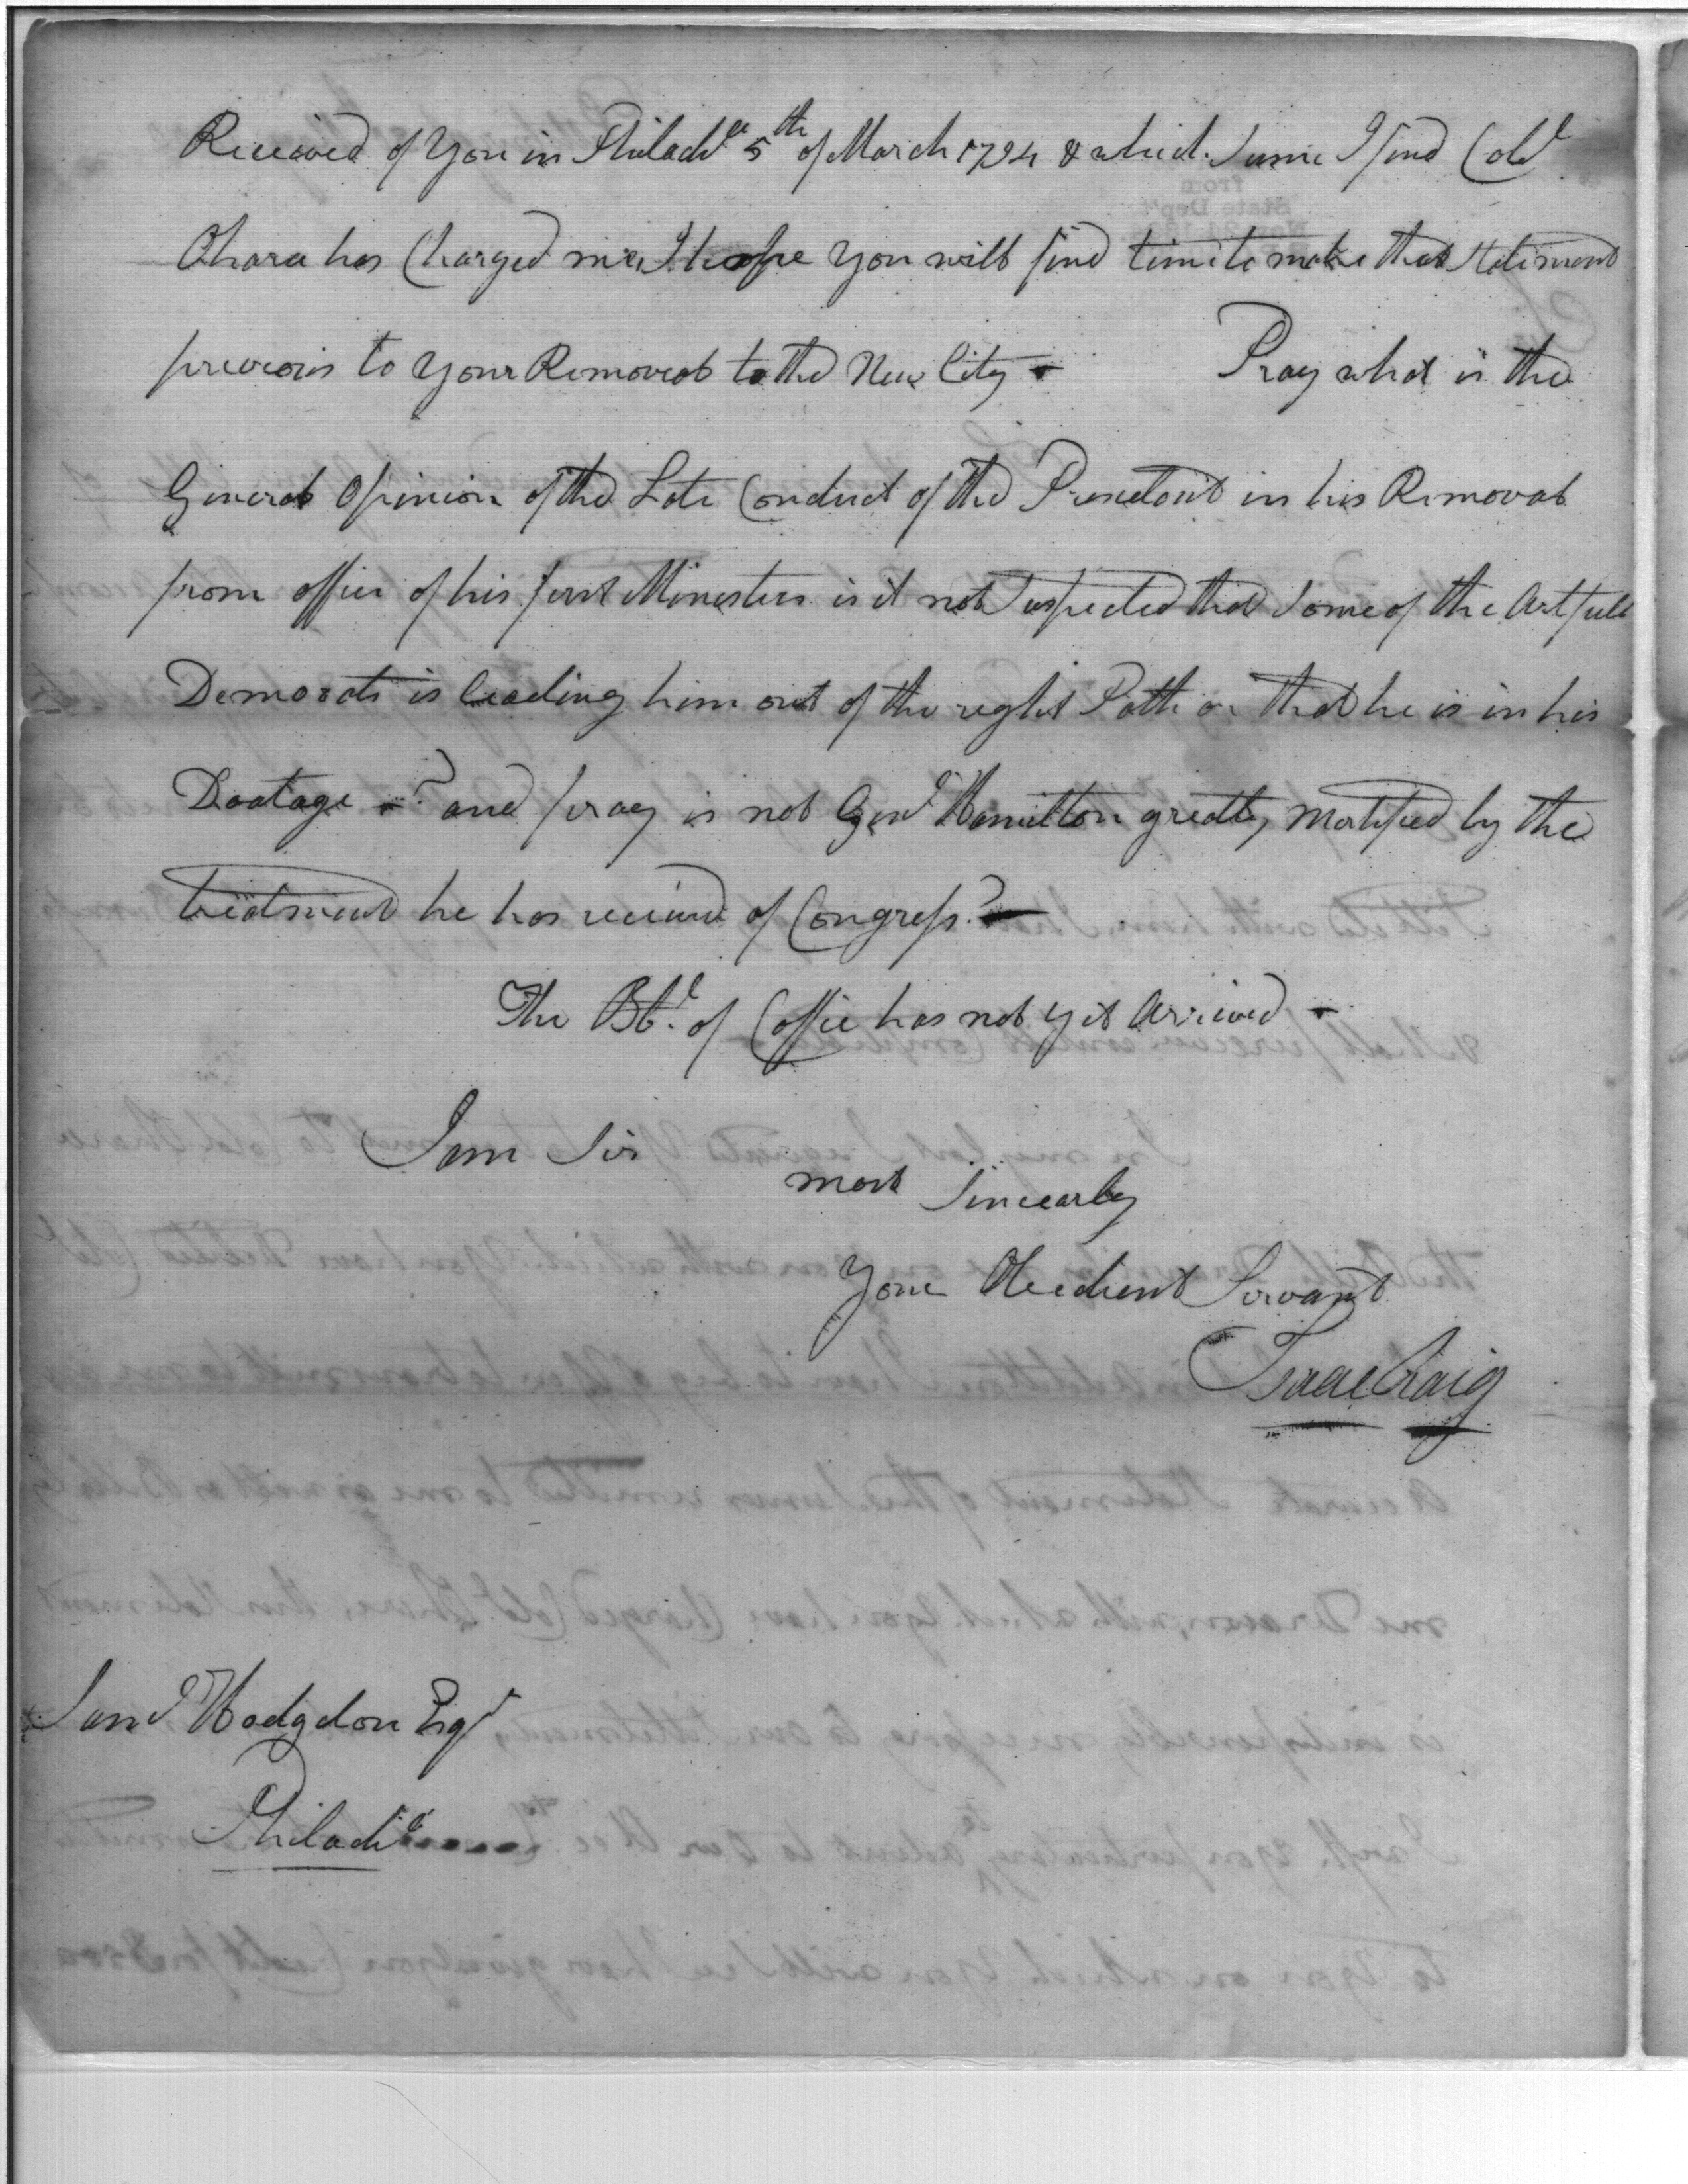 Received of You in Philada 5th of March 1794 & which Sume I find Colo
Ohara has Charged me, I hope You will find time to make that Statement
previous to Your Removeal to the New City -      Pray what is the
General Opinion of the Late Conduct of the President in his Removal
from office of his first Ministers is it not Suspected that Some of the Artfull
Demorats is leading him out of the right Path or that he is in his
Doatage -? and pray is not Genl Hamilton greatly Mortified by the
treatment he has received of Congress? -
The Bbl. of Coffie has not yet Arrived -
I am Sir
most Sincearly
Your Obedient Servant
Isaac Craig
Saml Hodgdon Esqr
Philada